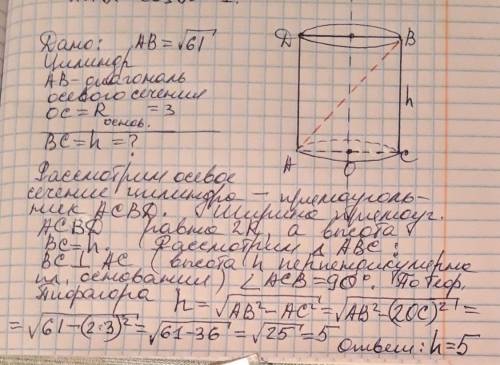 Дано: AB = √61
Цилиндр
AB - диагональ
осевого сечения
OC = R основ. = 3
BC = h = ?
D B
h
A O C
Рассмотрим осевое
сечение цилиндра - прямоуголь-
ник ACBD. Ширина прямоуг.
ACBD равна 2R, а высота
BC = h. Рассмотрим △ ABC:
BC ⊥ AC (высота h перпендикулярна
пл. основания) ∠ ACB = 90°. По теор.
Пифагора h = √AB² - AC² = √AB² - (2OC)² =
= √61 - (2·3)² = √61 - 36 = √25 = 5
Ответ: h = 5